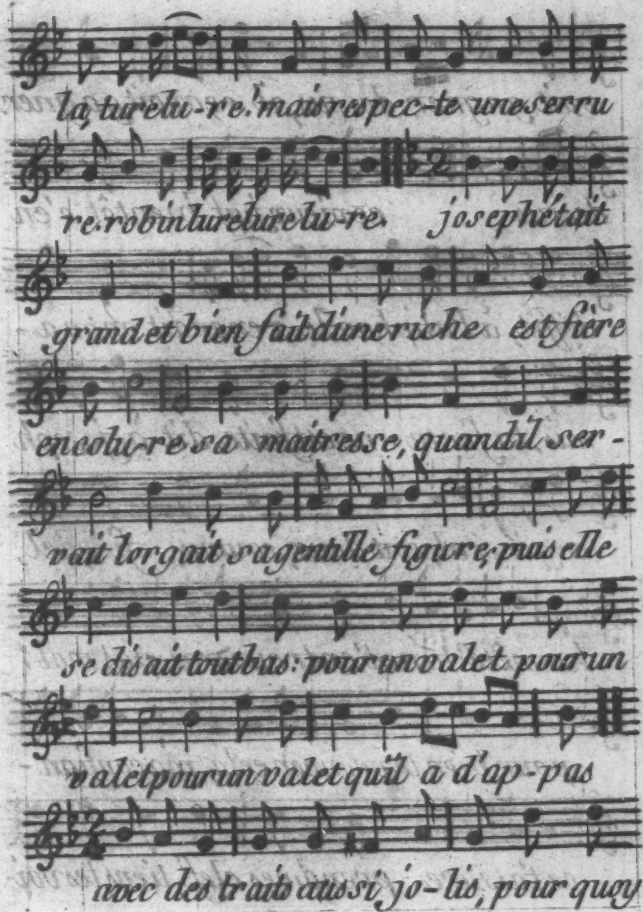 la, turelu-re! mais respec-te une serru
re. robin turelurelu-re. joseph était
grand et bien fait d'une riche est fière
encolu-re sa maitresse, quand il ser-
vait lorgait sa gentille figure, puis elle
se disait tout bas: pour un valet pour un
valet pour un valet qu'il a d'ap-pas
avec des traits aussi jo-lis, pour quoy